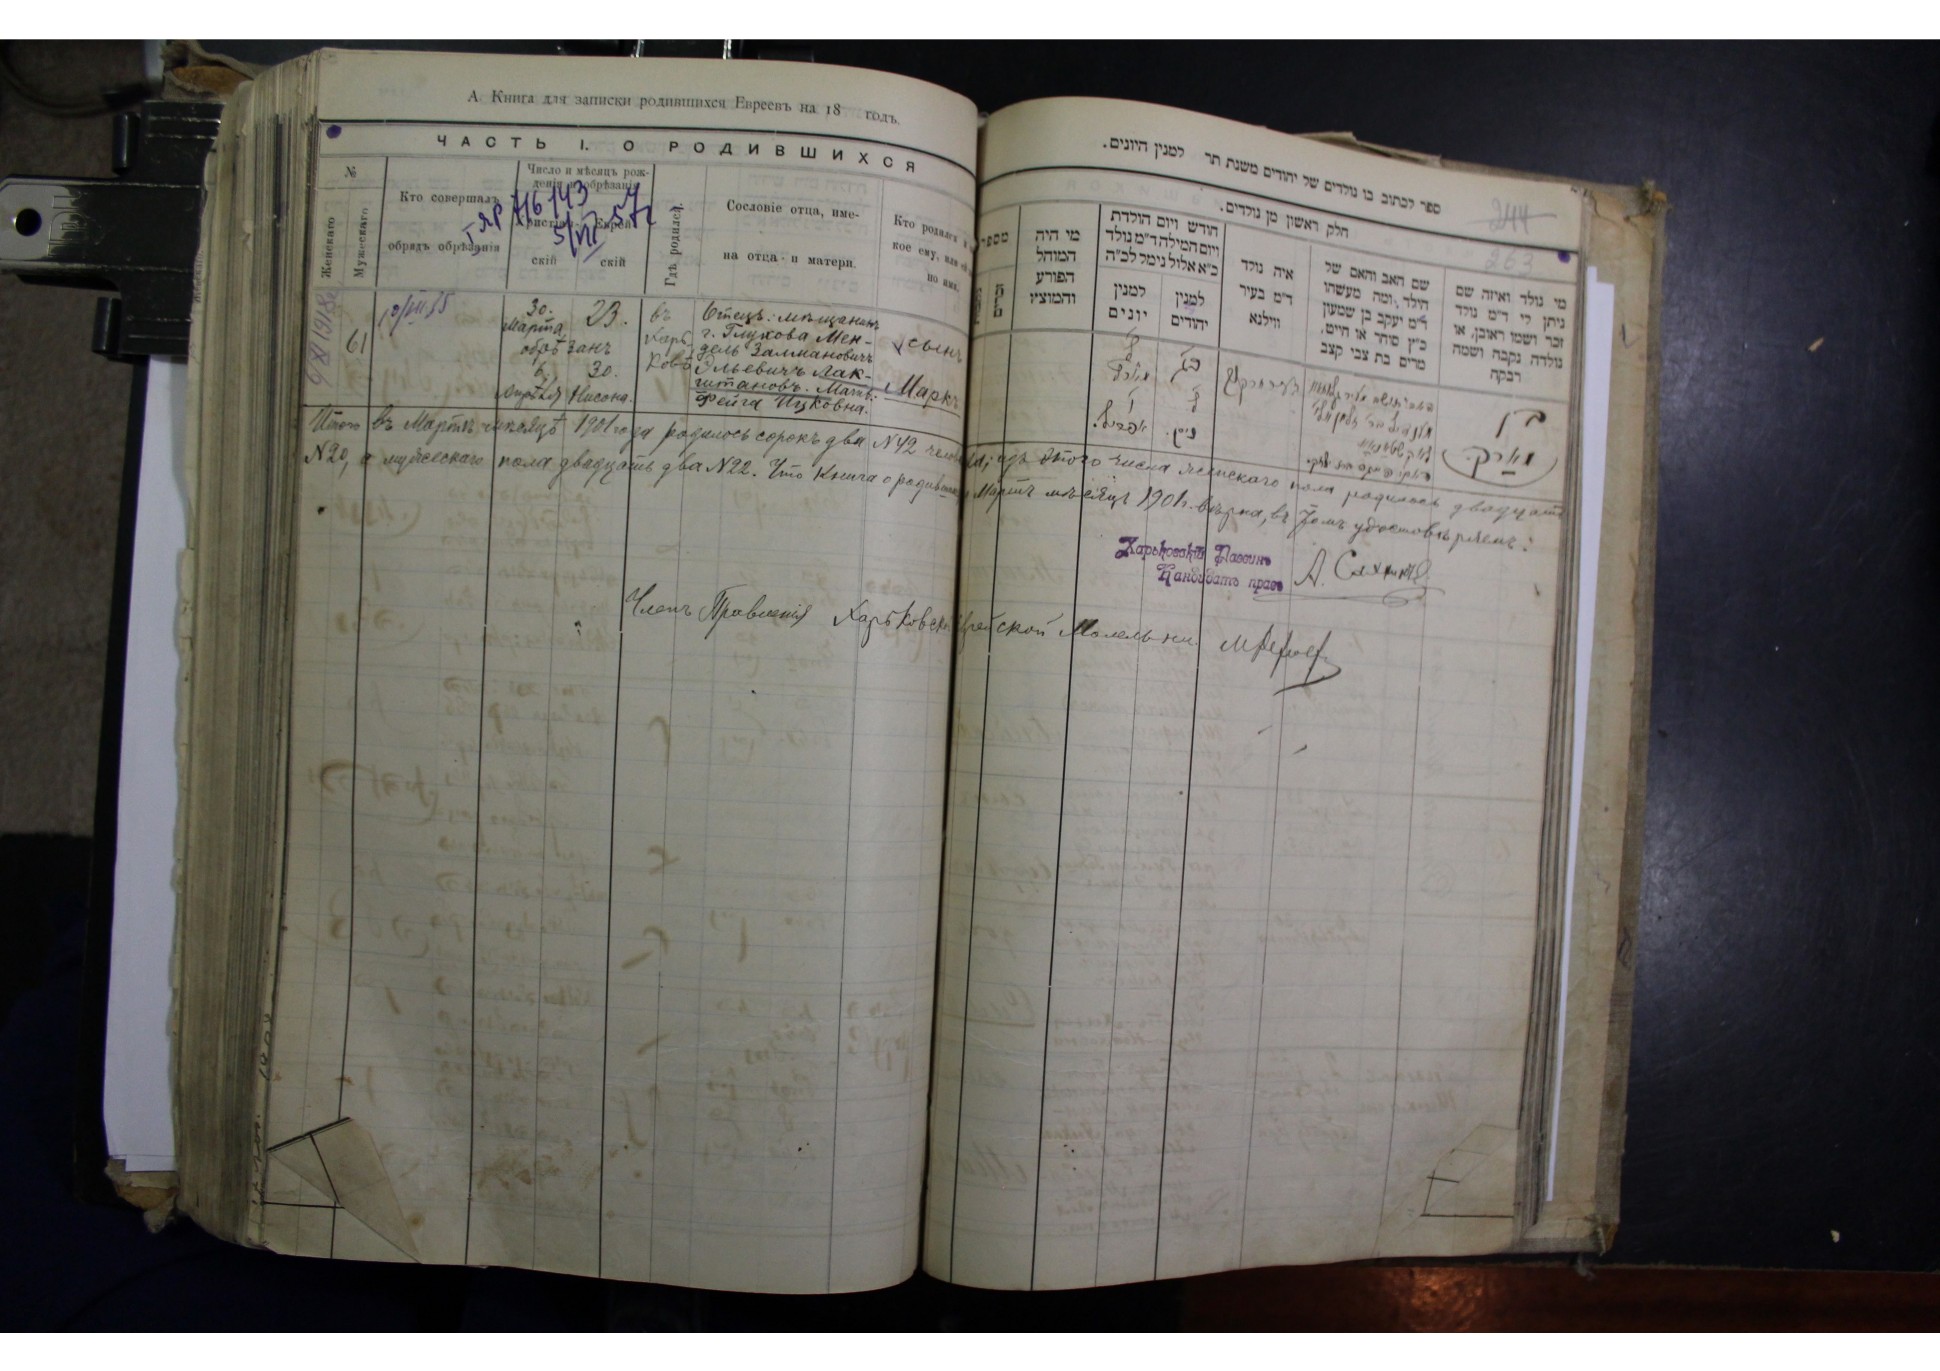 А. Книга для записки родившихся Евреевъ на 18 годъ.
ЧАСТЬ I. О РОДИВШИХСЯ
№
Женскаго
Мужескаго
Кто совершалъ
обрядъ обрѣзанія
Число и мѣсяцъ рож-
денія и обрѣзанія
Христіан-
скій
Еврей-
скій
Гдѣ родился.
Сословіе отца, име-
на отца и матери.
Кто родился и
кое ему, или ей
но имя.
716143
61
30.
Марта
обрѣзанъ
6.
Апрѣля
23.
30.
Нисона.
въ
Харь-
ковѣ
Отецъ: мѣщанинъ
г. Глухова Мен-
дель Залмановичъ
Эльевичъ Лак-
шитановъ. Мать:
Фейга Ицковна.
сынъ
Маркъ
Итого въ Мартѣ мѣсяцѣ 1901 года родилось сорокъ два №42 человѣка; изъ этого числа женскаго пола родилось двадцать
№20, а мужескаго пола двадцать два №22. Что книга о родившихся Мартъ мѣсяцъ 1901 г. вѣрна, въ томъ удостовѣряемъ:
Харьковскій Раввинъ
Кандидатъ правъ
Членъ Правленія Харьковской Еврейской Молельни
ספר לכתוב בו נולדים של יהודים משנת תר למנין היונים.
חלק ראשון מן נולדים.
244
263
מספר
מי היה
המוהל
הפורע
והמוציץ
חודש ויום הולדת
ויום המילה ד״מ נולד
כ״א אלול נימל לכ״ה
למנין
יונים
למנין
יהודים
איה נולד
ד״מ בעיר
ווילנא
שם האב והאם של
הילד ומה מעשהו
ד״מ יעקב בן שמעון
כ״ץ סוחר או חייט,
מרים בת צבי קצב
מי נולד ואיזה שם
ניתן לו ד״מ נולד
זכר ושמו ראובן, או
נולדה נקבה ושמה
רבקה
בן
מארק